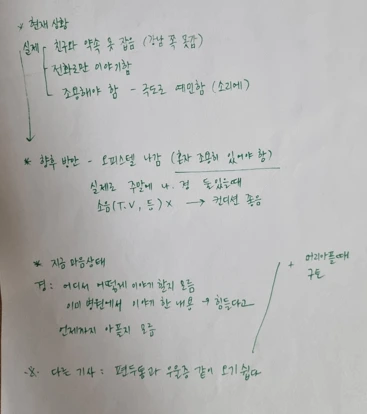 * 현재 상황
실제 친구와 약속 못 잡음 (강남 꼭 못감)
전화로만 이야기함
조용해야 함 - 극도로 예민함 (소리에)
* 향후 방안 - 오피스텔 나감 (혼자 조용히 있어야 함)
실제로 주말에 나. 경 둘있을때
소음(T.V, 등) X → 컨디션 좋음
* 지금 마음상태
경 : 어디서 어떻게 이야기 할지 모름
이미 병원에서 이야기 한 내용 → 힘들다고
언제까지 아플지 모름
+ 머리아플때
구토
※ 다른 기사 : 편두통과 우울증 같이 오기 쉽다